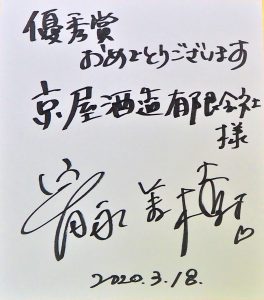 優秀賞
おめでとうございます
京屋酒造有限会社
様
2020.3.18.